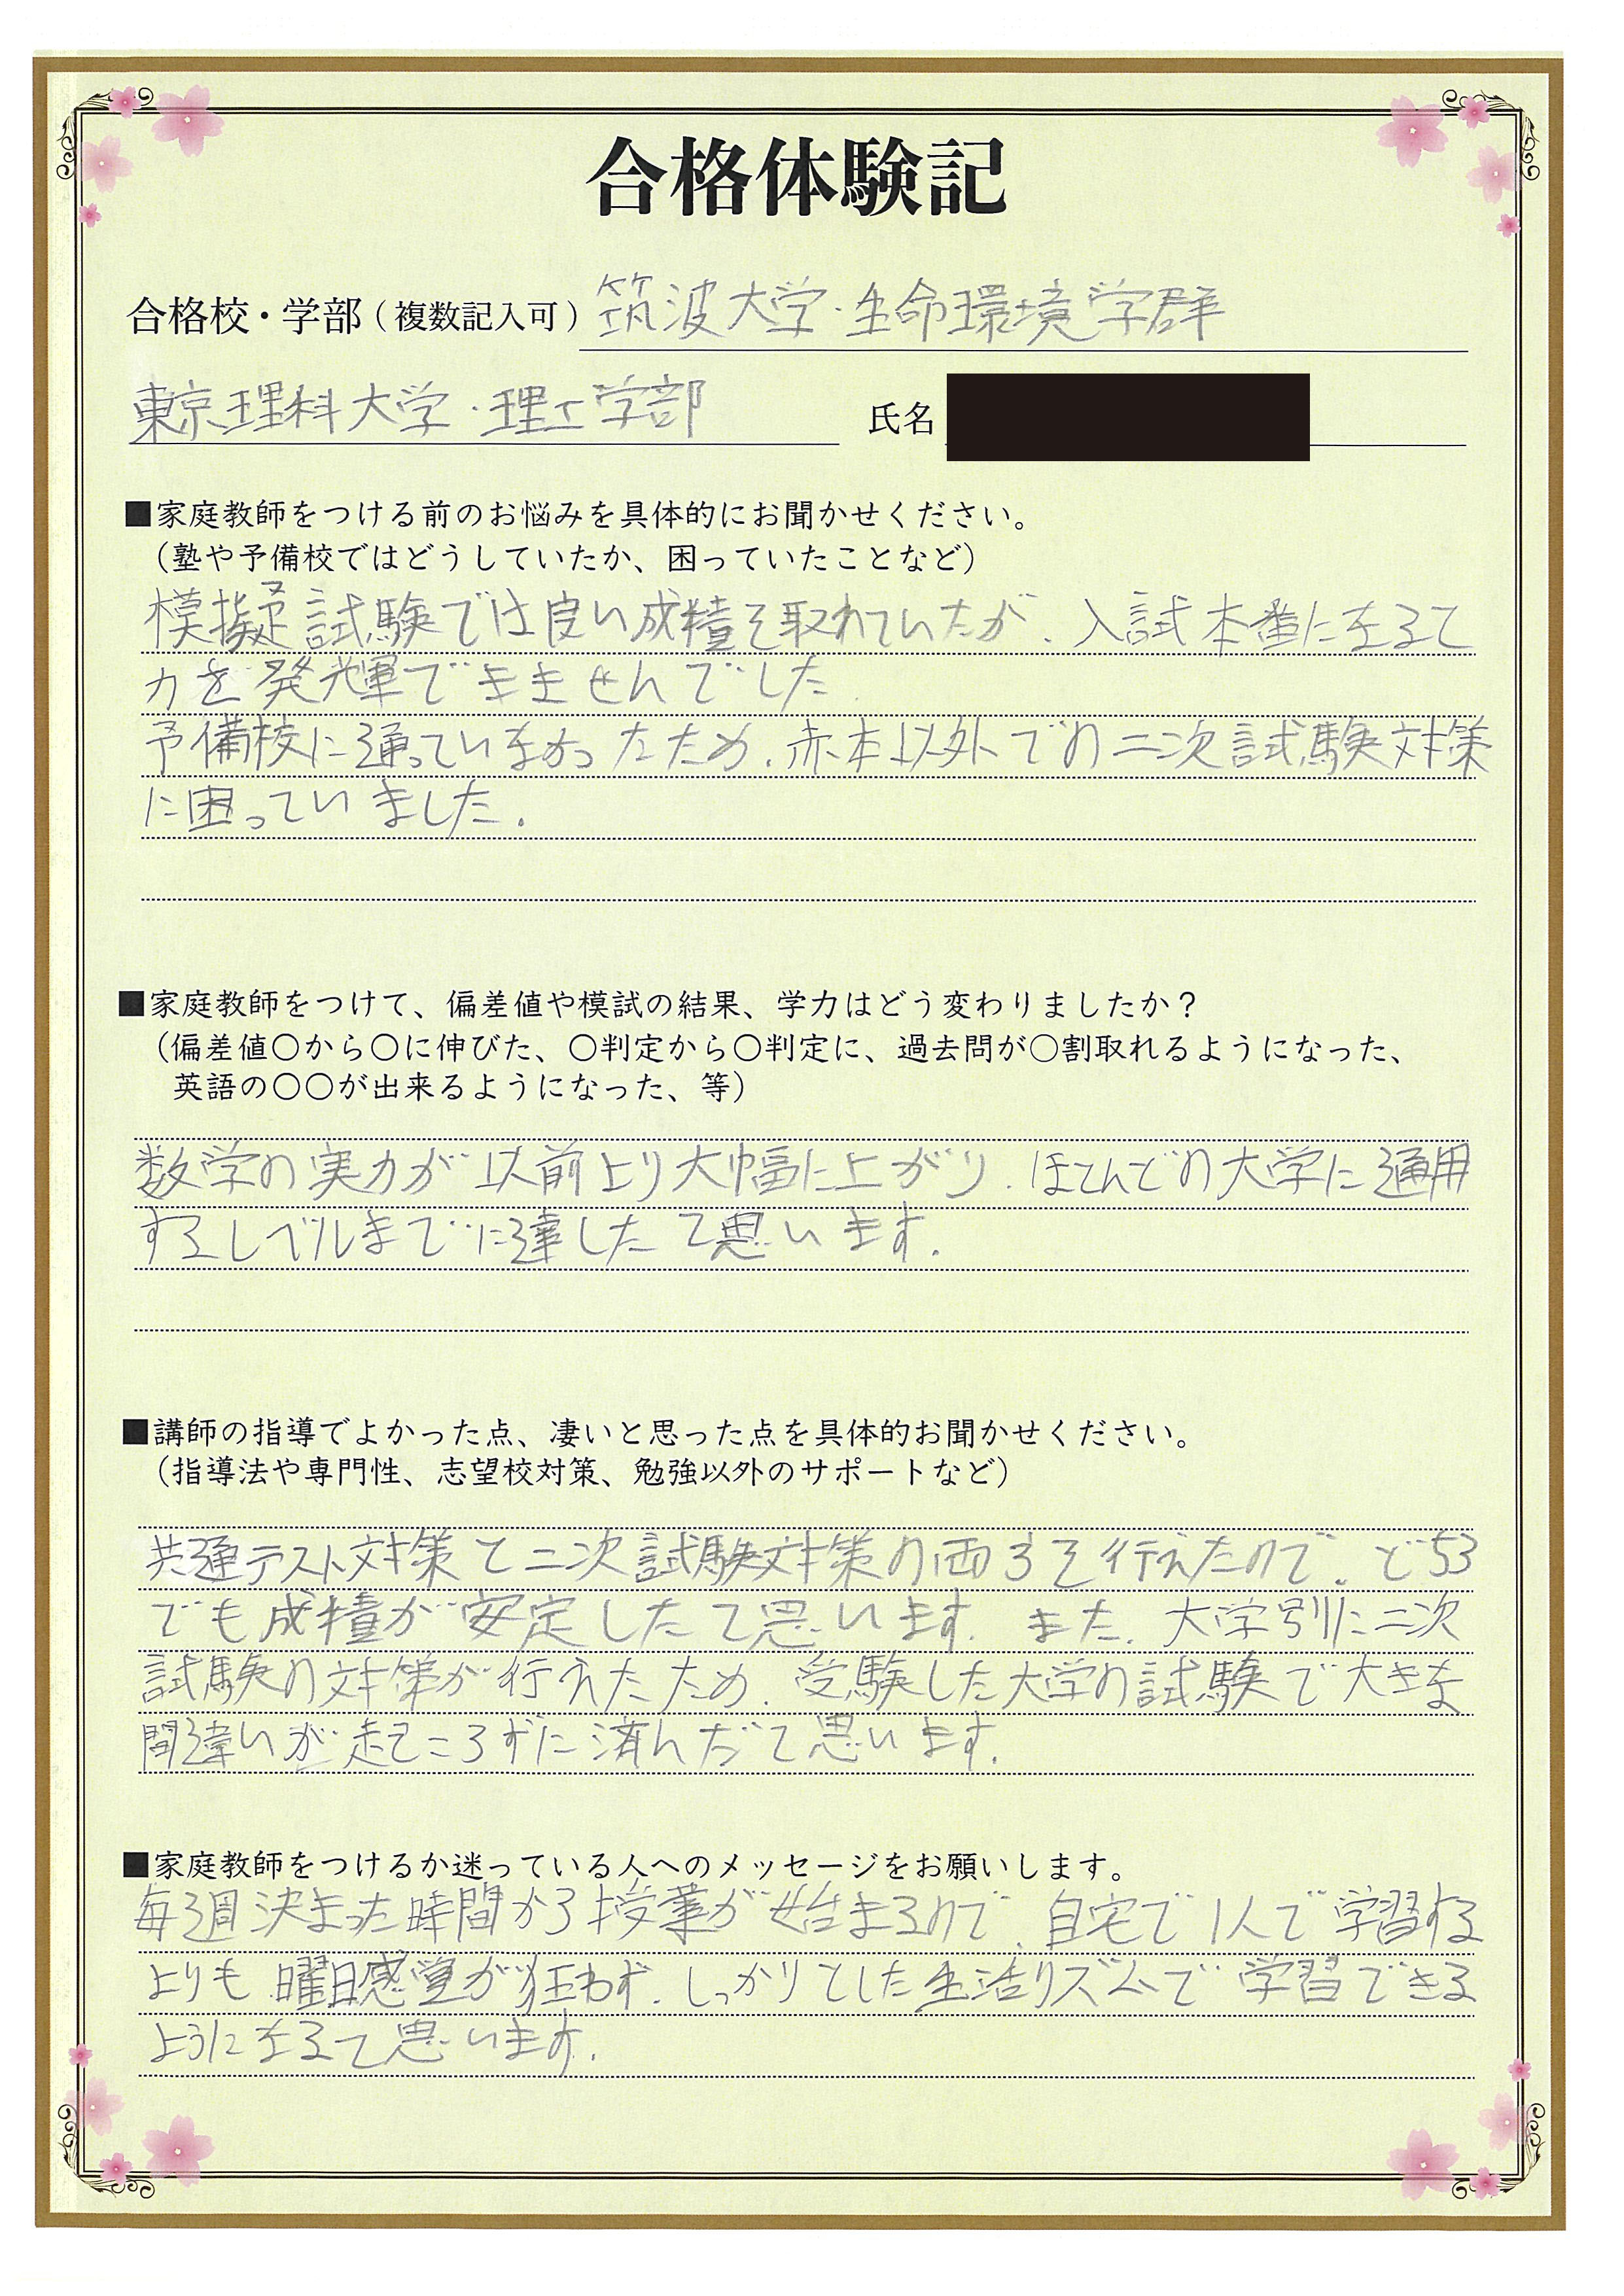 合格体験記
合格校・学部（複数記入可）筑波大学・生命環境学群
東京理科大学・理工学部 氏名
■家庭教師をつける前のお悩みを具体的にお聞かせください。
（塾や予備校ではどうしていたか、困っていたことなど）
模擬試験では良い成積を取れていたが、入試本番になると
力を発揮できませんでした。
予備校に通っていなかったため、赤本以外での二次試験対策
に困っていました。
■家庭教師をつけて、偏差値や模試の結果、学力はどう変わりましたか？
（偏差値〇から〇に伸びた、〇判定から〇判定に、過去問が〇割取れるようになった、
英語の〇〇が出来るようになった、等）
数学の実力が以前より大幅に上がり、ほとんどの大学に通用
するレベルまでに達したと思います。
■講師の指導でよかった点、凄いと思った点を具体的お聞かせください。
（指導法や専門性、志望校対策、勉強以外のサポートなど）
共通テスト対策と二次試験対策の両方を行えたので、どちら
でも成積が安定したと思います。また、大学別に二次
試験の対策が行えたため、受験した大学の試験で大きな
間違いが起こらずに済んだと思います。
■家庭教師をつけるか迷っている人へのメッセージをお願いします。
毎週決まった時間から授業が始まるので、自宅で1人で学習する
よりも曜日感覚が狂わず、しっかりとした生活リズムで学習できる
ようになると思います。